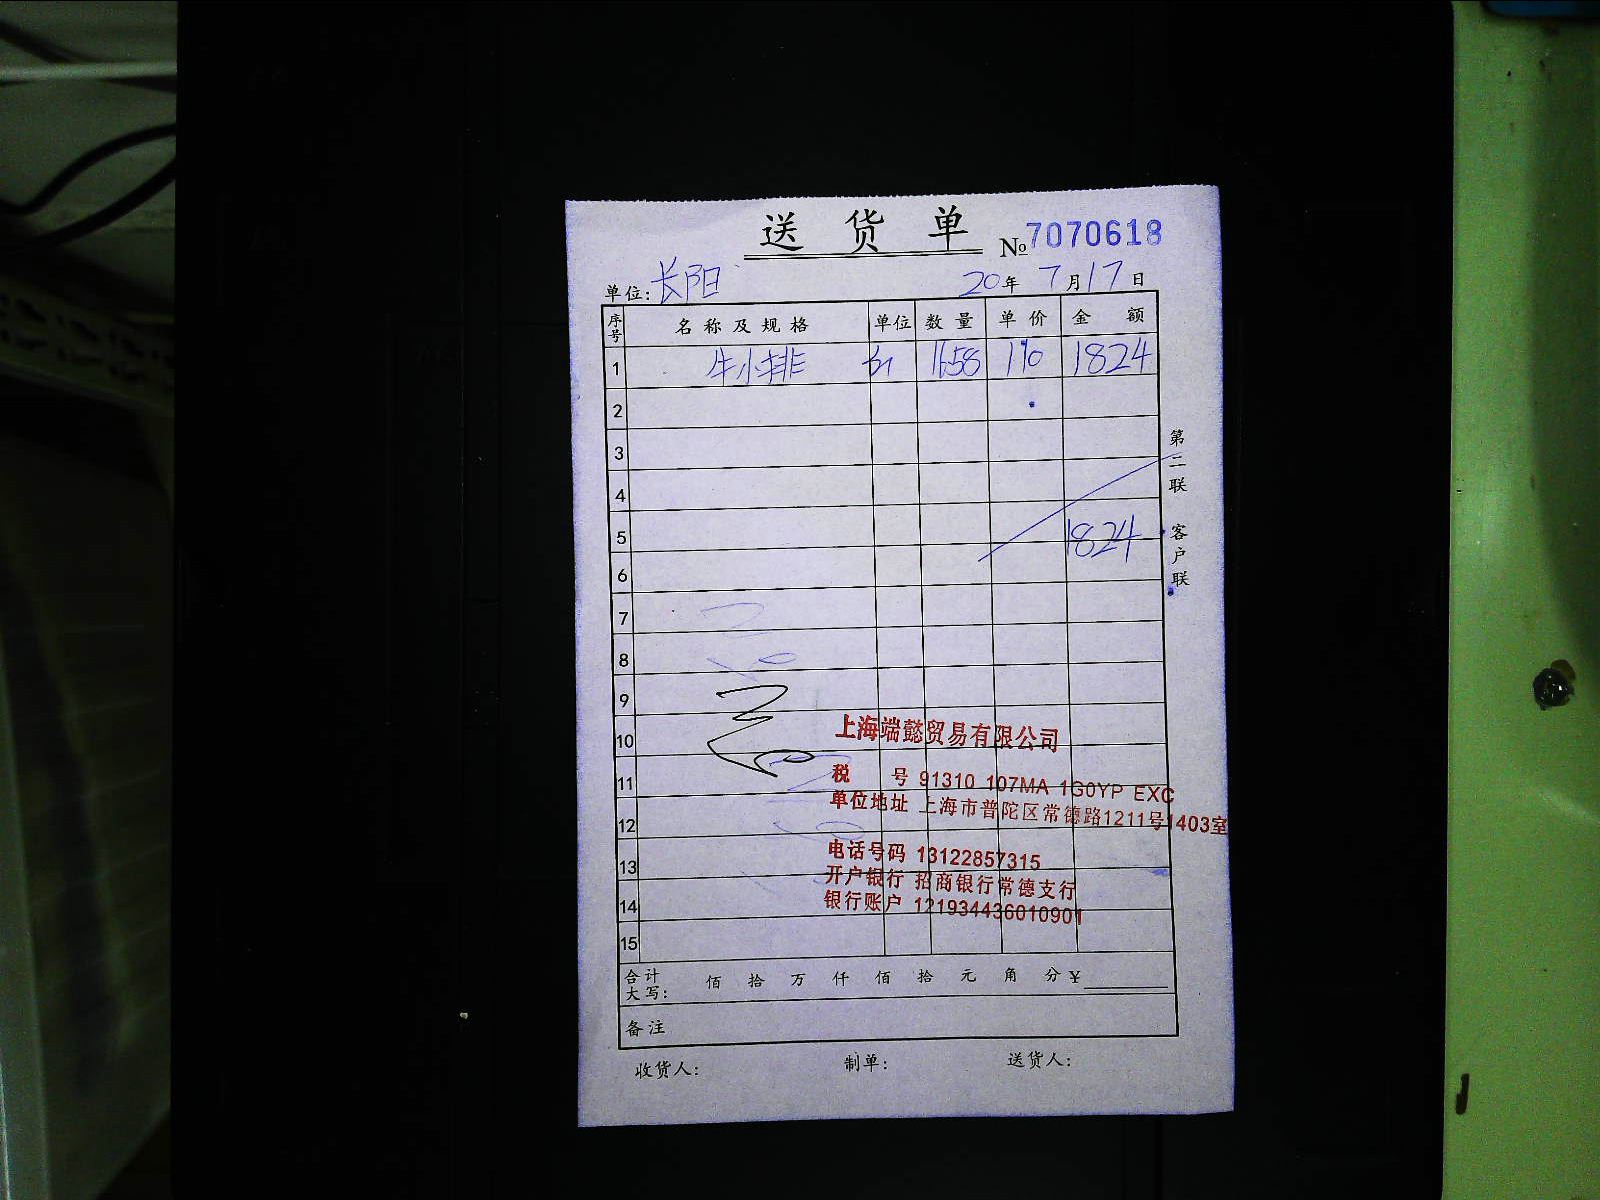 送 货 单 №7070618
单位: 长阳 20年 7月17日
序号 名称及规格 单位 数量 单价 金 额
1 牛小排 1658 110 1824
2
3
4
5 1824
6
7
8
9
10
11
12
13
14
15
第二联 客户联
上海端懿贸易有限公司
税 号 91310 107MA 1G0YP EXC
单位地址 上海市普陀区常德路1211号1403室
电话号码 13122857315
开户银行 招商银行常德支行
银行账户 121934436010901
合计大写: 佰 拾 万 仟 佰 拾 元 角 分 ¥
备注
收货人: 制单: 送货人: